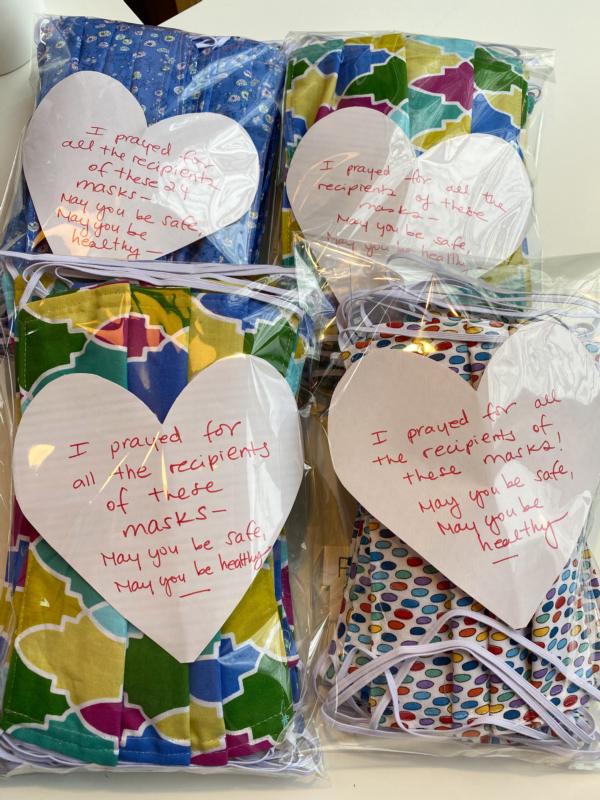 I prayed for
all the recipients
of these 24
masks—
May you be safe,
May you be
healthy—
I prayed for all the
recipients of these
masks—
May you be safe,
May you be health
I prayed for
all the recipients
of these
masks—
May you be safe,
May you be healthy
I prayed for all
the recipients of
these masks!
May you be safe,
May you be
healthy